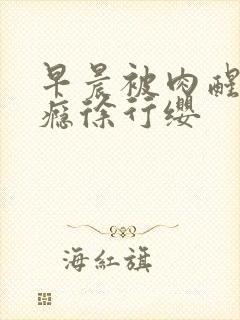 早晨被肉醒
瘾徐行缨
海紅旗